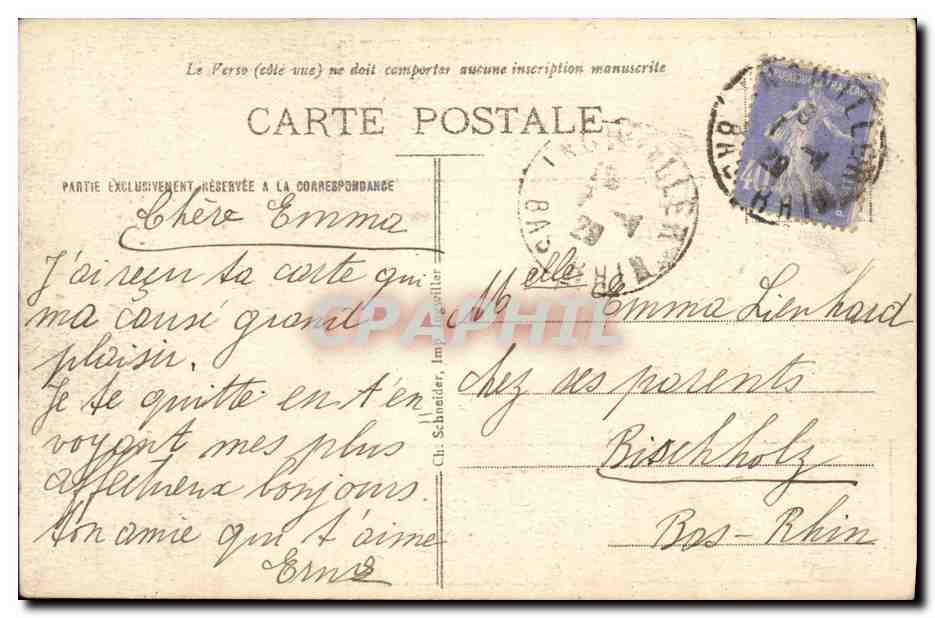 Le Verso (côté vue) ne doit comporter aucune inscription manuscrite
CARTE POSTALE
PARTIE EXCLUSIVEMENT RÉSERVÉE A LA CORRESPONDANCE
Chère Emma
J'ai reçu ta carte qui
ma causé grand
plaisir.
Je te quitte en t'en
voyant mes plus
affectueux bonjours.
ton amie qui t'aime
Ch. Schneider, Imp. Ingwiller
INGWILLER
BAS RHIN
INGWILLER
BAS RHIN
40
Melle Emma Lienhard
chez ses parents
Bischholz
Bas-Rhin
CPAPHIL